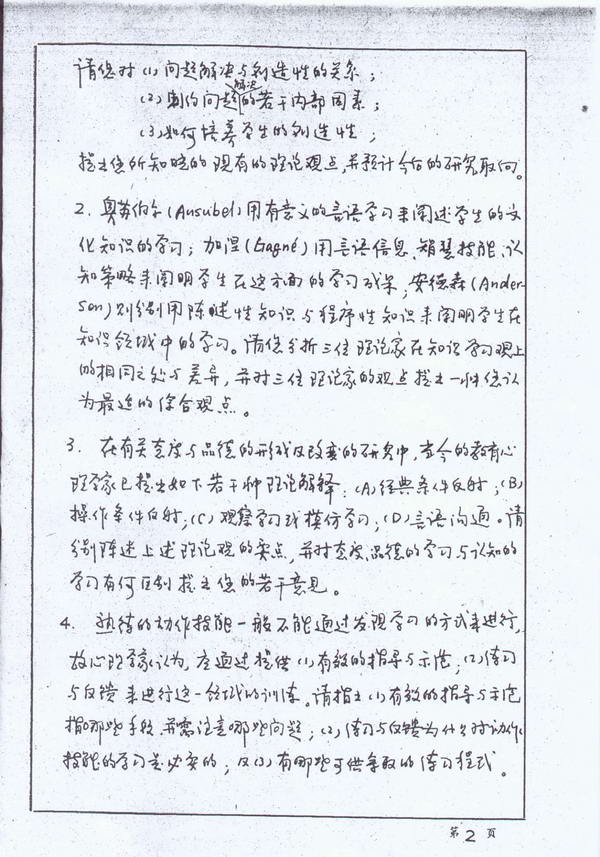 请您对(1)问题解决与创造性的关系；
(2)制约问题解决的若干内部因素；
(3)如何培养学生的创造性；
提出您所知晓的现有的理论观点，并预计今后的研究取向。
2. 奥苏伯尔(Ausubel)用有意义的言语学习来阐述学生的文
化知识的学习；加涅(Gagné)用言语信息、智慧技能、认
知策略来阐明学生在这方面的学习成果；安德森(Ander-
son)则分别用陈述性知识与程序性知识来阐明学生在
知识领域中的学习。请您分析三位理论家在知识学习观上
的相同之处与差异，并对三位理论家的观点提出一种您认
为最适的综合观点。
3. 在有关态度与品德的形成及改变的研究中，当今的教育心
理学家已提出如下若干种理论解释：(A)经典条件反射；(B)
操作条件反射；(C)观察学习或模仿学习；(D)言语沟通。请
分别陈述上述理论观的要点，并对态度、品德的学习与认知的
学习有何区别提出您的若干意见。
4. 熟练的动作技能一般不能通过发现学习的方式来进行，
故心理学家认为，应通过提供(1)有效的指导与示范；(2)练习
与反馈来进行这一领域的训练。请指出(1)有效的指导与示范
指哪些手段，并需注意哪些问题；(2)练习与反馈为什么对动作
技能的学习是必要的；及(3)有哪些可供采取的练习程式。
第2页